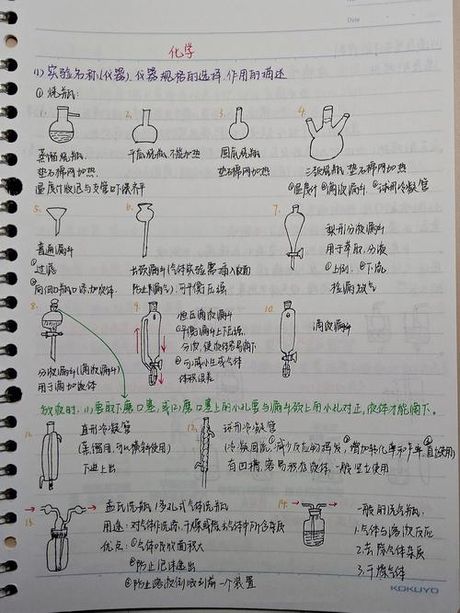 Date
化学
(1) 实验名称(仪器)、仪器规格的选择、作用的描述
① 烧瓶:
1.
2.
3.
4.
蒸馏烧瓶
垫石棉网加热
温度计水银球与支管口下缘齐平
平底烧瓶,不能加热
圆底烧瓶
垫石棉网加热
三颈烧瓶 垫石棉网加热
①温度计 ②滴液漏斗 ③球形冷凝管
5.
6.
7.
普通漏斗
①过滤
②向小口容器中添加液体
长颈漏斗(气体实验需插入液面
防止漏气),可平衡压强
梨形分液漏斗
用于萃取、分液
①上倒 ②下流
检漏放气
8.
9.
10.
分液漏斗(滴液漏斗)
用于滴加液体
恒压滴液漏斗
①平衡漏斗上下压强
使液体易滴下
②可减小生成气体
体积误差
滴液漏斗
放液时,(1)要取下磨口塞,或(2)磨口塞上的小孔要与漏斗颈上的小孔对正,液体才能滴下。
11.
直形冷凝管
(蒸馏用,可以倾斜使用)
下进上出
12.
球形冷凝管
(冷凝回流,减少反应物挥发,增加转化率和产率,直立使用)
有凹槽,容易残存液体,一般竖立使用
13.
孟氏洗瓶/多孔式气体洗瓶
用途:对气体作洗涤,干燥或除去气体中所含杂质
优点:①气体吸收面积大
②防止泡沫逸出
③防止溶液倒吸到前一个装置
14.
一般的洗气瓶
1.气体与溶液反应
2.去除气体杂质
3.干燥气体
KOKUYO